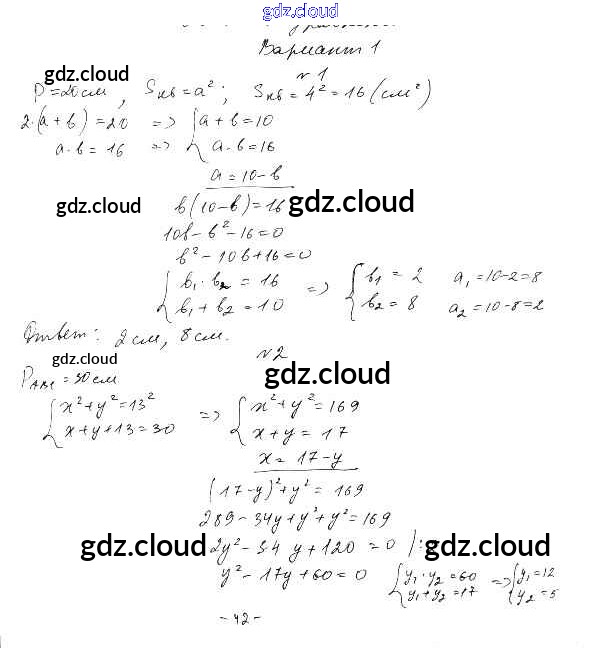 gdz.cloud
Вариант 1
№1
gdz.cloud
P=20 см, Sкв=a²; Sкв=4²=16(см²)
2·(a+b)=20 => { a+b=10
a·b=16 => { a·b=16
a=10-b
gdz.cloud b(10-b)=16 gdz.cloud
10b-b²-16=0
b²-10b+16=0
{ b₁·b₂=16 => { b₁=2 a₁=10-2=8
{ b₁+b₂=10 { b₂=8 a₂=10-8=2
Ответ: 2 см, 8 см.
№2
gdz.cloud gdz.cloud
P =30 см
{ x²+y²=13² => { x²+y²=169
{ x+y+13=30 { x+y=17
x=17-y
(17-y)²+y²=169
289-34y+y²+y²=169
gdz.cloud 2y²-34y+120=0 gdz.cloud
y²-17y+60=0 { y₁·y₂=60 => { y₁=12
{ y₁+y₂=17 { y₂=5
-42-